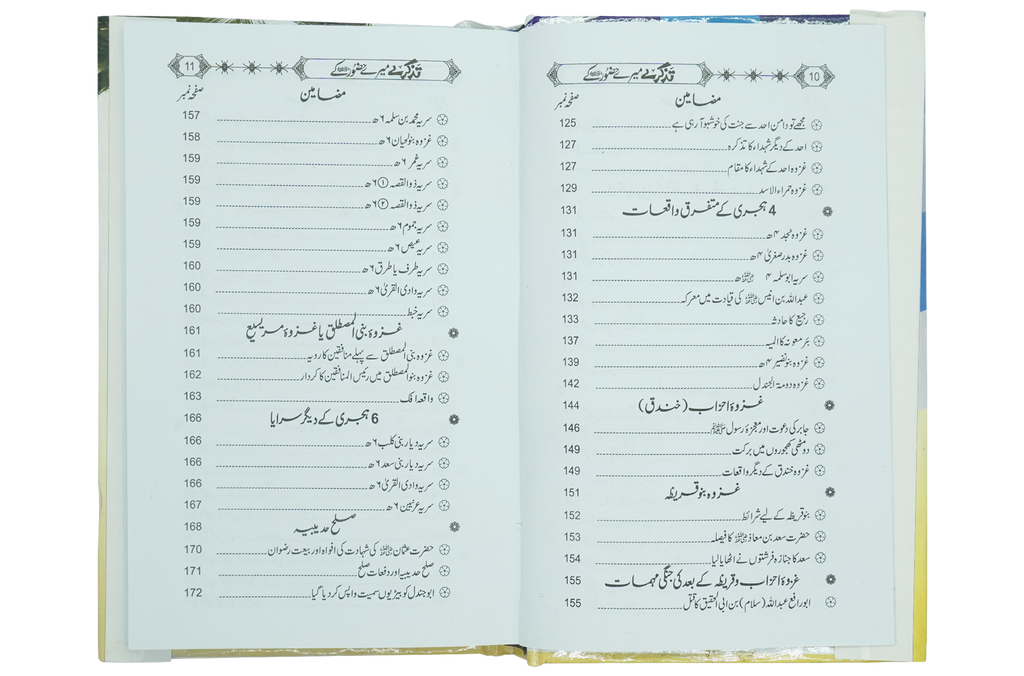 10 تذکرے میرے حضور ﷺ کے
مضامین صفحہ نمبر
مجھے تو دامن احد سے جنت کی خوشبو آ رہی ہے 125
احد کے دیگر شہداء کا تذکرہ 127
غزوہ احد کے شہداء کا مقام 127
غزوہ حمراء الاسد 129
4 ہجری کے متفرق واقعات 131
غزوہ نجد ۴ھ 131
غزوہ بدر صغریٰ ۴ھ 131
سریہ ابو سلمہ ۴ھ 131
عبداللہ بن انیس رضی اللہ عنہ کی قیادت میں معرکہ 132
رجیع کا حادثہ 133
بئر معونہ کا المیہ 137
غزوہ بنو نضیر ۴ھ 139
غزوہ دومۃ الجندل 142
غزوۂ احزاب (خندق) 144
جابر کی دعوت اور معجزۂ رسول ﷺ 146
دو مٹھی کھجوروں میں برکت 149
غزوہ خندق کے دیگر واقعات 149
غزوہ بنو قریظہ 151
بنو قریظہ کے لیے شرائط 152
حضرت سعد بن معاذ رضی اللہ عنہ کا فیصلہ 153
سعد کا جنازہ فرشتوں نے اٹھایا لیا 154
غزوۂ احزاب و قریظہ کے بعد کی جنگی مہمات 155
ابو رافع عبداللہ (سلام) بن ابی الحقیق کا قتل 155
تذکرے میرے حضور ﷺ کے 11
مضامین صفحہ نمبر
سریہ محمد بن سلمہ ۶ھ 157
غزوہ بنو لحیان ۶ھ 158
سریہ غمر ۶ھ 159
سریہ ذو القصہ ① ۶ھ 159
سریہ ذو القصہ ② ۶ھ 159
سریہ جموم ۶ھ 159
سریہ عیص ۶ھ 159
سریہ طرف یا طرق ۶ھ 160
سریہ وادی القریٰ ۶ھ 160
سریہ خبط 160
غزوۂ بنی المصطلق یا غزوۂ مریسیع 161
غزوہ بنی المصطلق سے پہلے منافقین کا رویہ 161
غزوہ بنو المصطلق میں رئیس المنافقین کا کردار 162
واقعہ افک 163
6 ہجری کے دیگر سرایا 166
سریہ دیار بنی کلب ۶ھ 166
سریہ دیار بنی سعد ۶ھ 166
سریہ وادی القریٰ ۶ھ 166
سریہ عرنیین ۶ھ 167
صلح حدیبیہ 168
حضرت عثمان رضی اللہ عنہ کی شہادت کی افواہ اور بیعت رضوان 170
صلح حدیبیہ اور دفعات صلح 171
ابو جندل کو بیڑیوں سمیت واپس کر دیا گیا 172